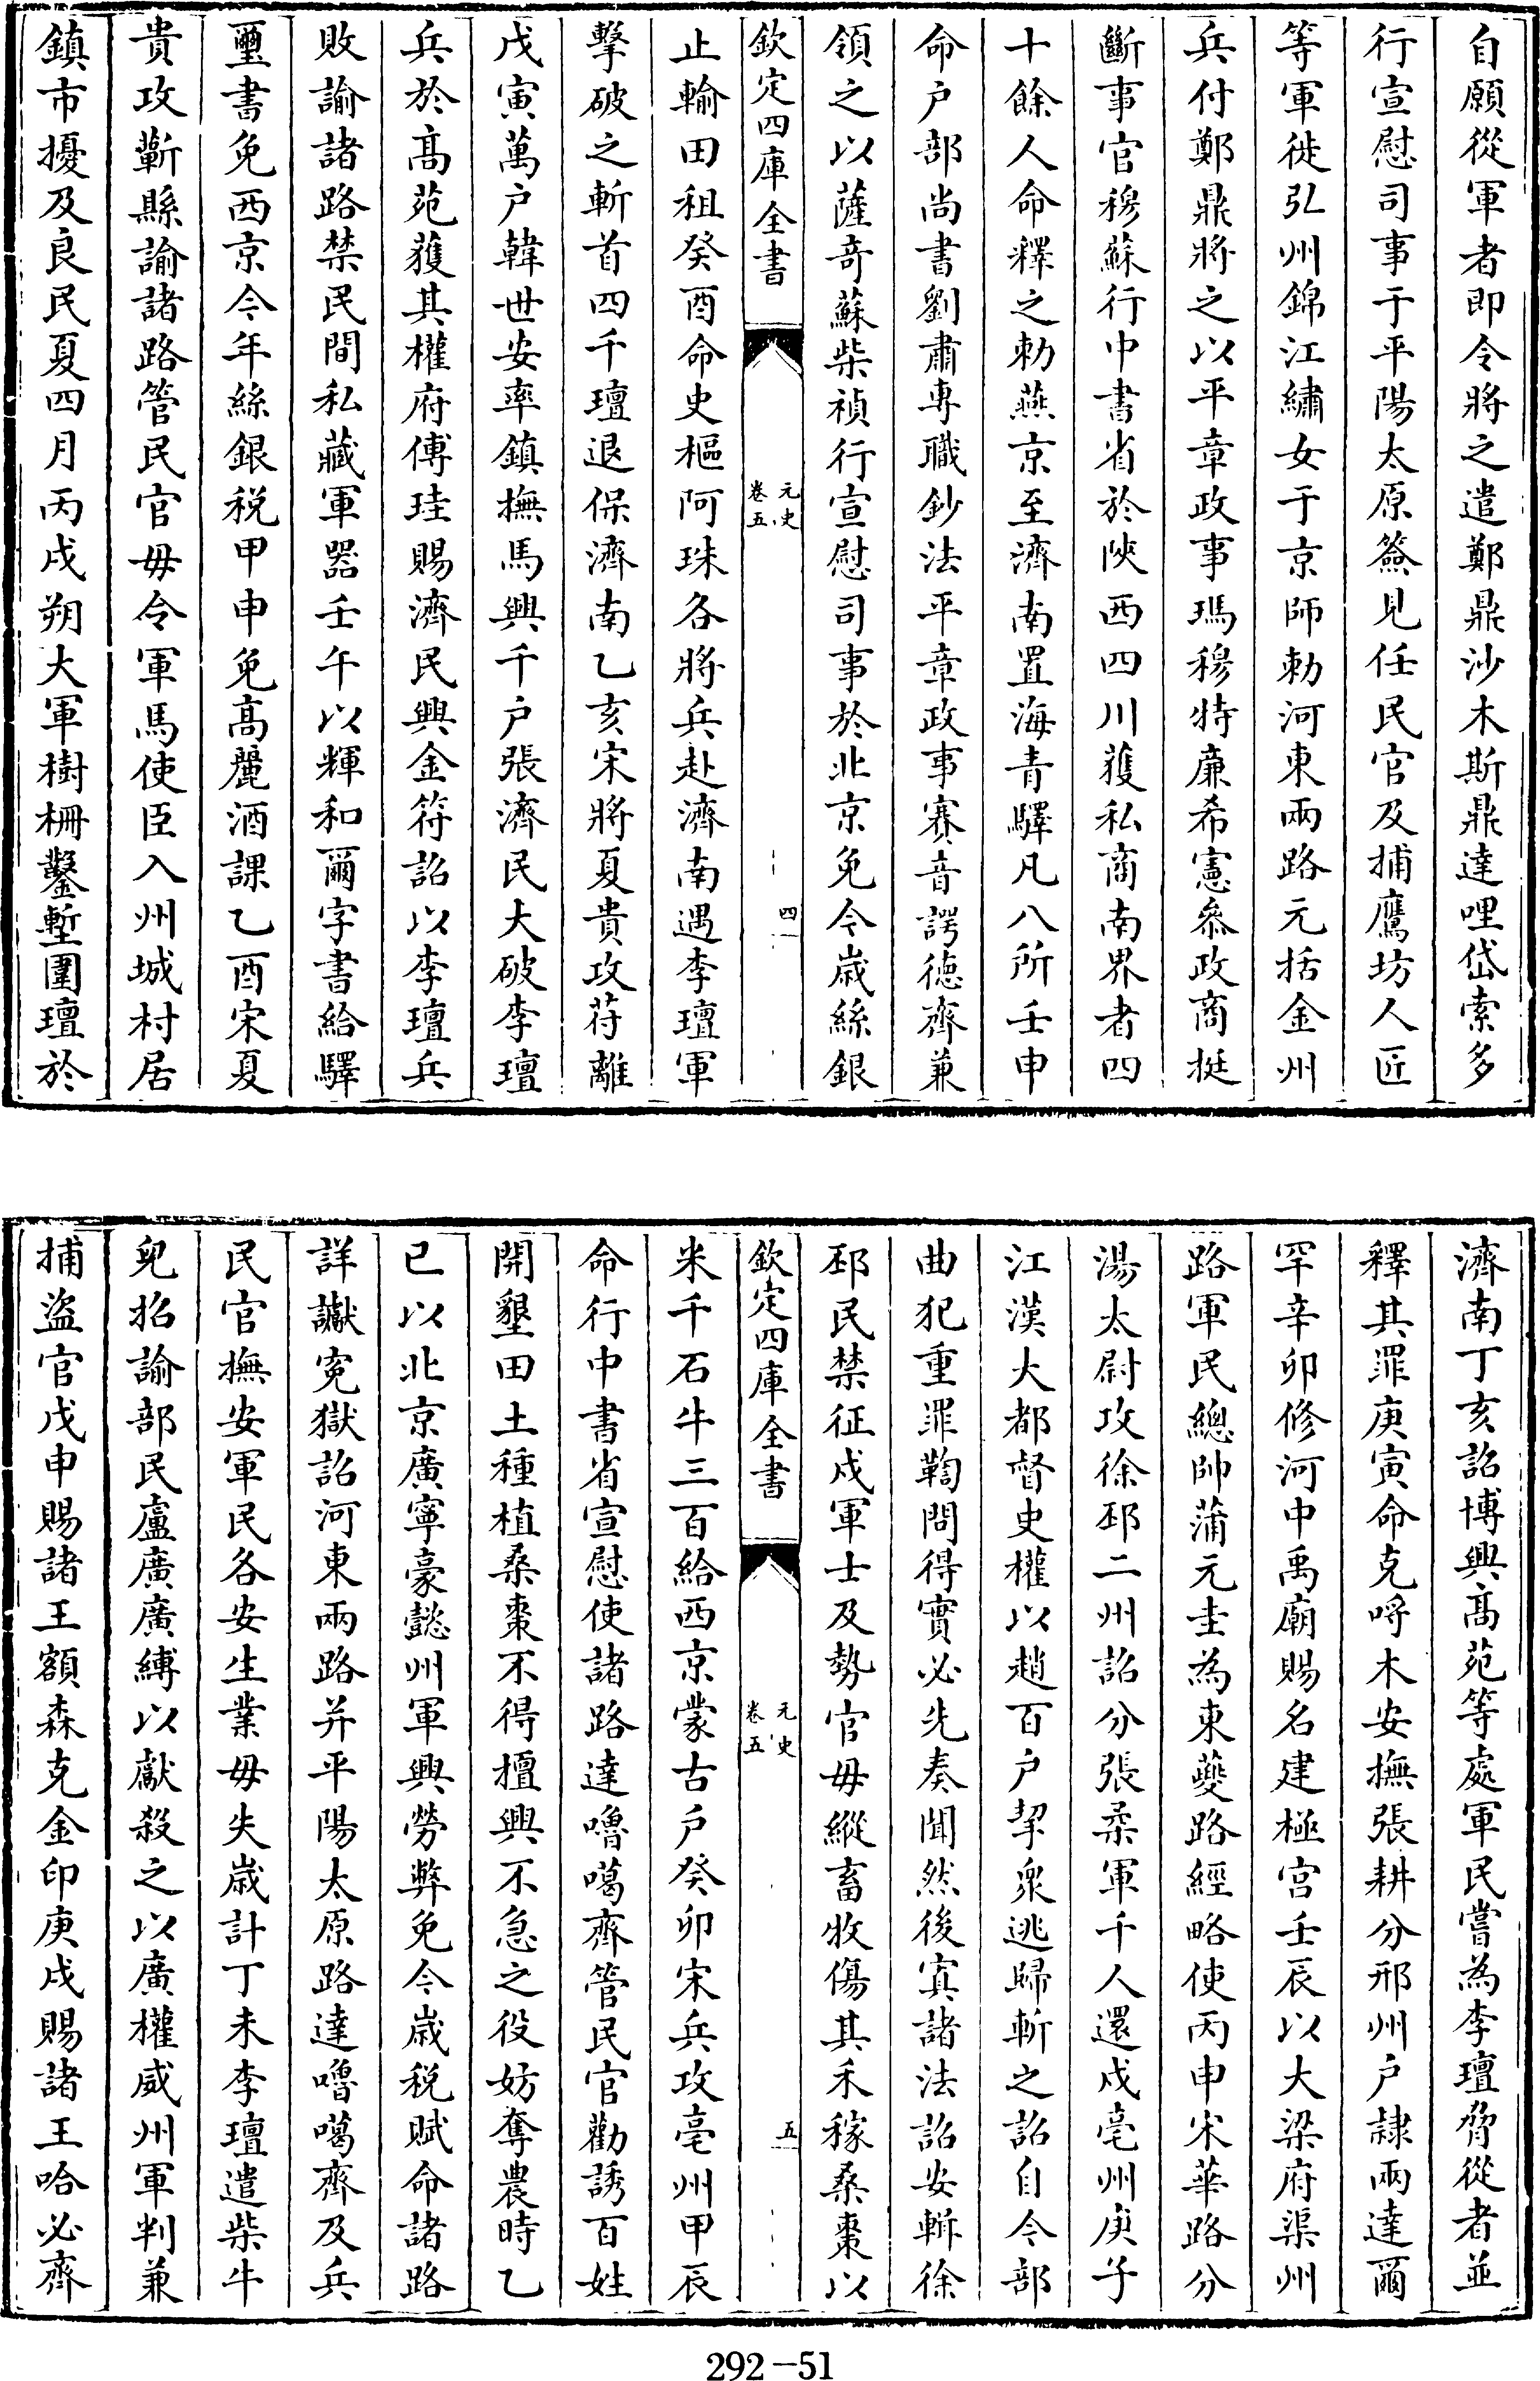 自願從軍者即令將之遣鄭鼎沙木斯鼎達哩岱索多
行宣慰司事于平陽太原簽見任民官及捕鷹坊人匠
等軍徙弘州錦江繡女于京師勅河東兩路元括金州
兵付鄭鼎將之以平章政事瑪穆特廉希憲叅政商挺
斷事官穆蘇行中書省於陜西四川獲私商南界者四
十餘人命釋之勅燕京至濟南置海青驛凡八所壬申
命户部尚書劉肅專職鈔法平章政事賽音諤徳齊兼
領之以薩竒蘇柴禎行宣慰司事於北京免今歳絲銀
欽定四庫全書
元史
卷五
四
止輸田租癸酉命史樞阿珠各將兵赴濟南遇李璮軍
擊破之斬首四千璮退保濟南乙亥宋將夏貴攻苻離
戊寅萬户韓世安率鎮撫馬興千户張濟民大破李璮
兵於髙苑獲其權府傅珪賜濟民興金符詔以李璮兵
敗諭諸路禁民間私藏軍器壬午以輝和爾字書給驛
璽書免西京今年絲銀税甲申免髙麗酒課乙酉宋夏
貴攻蘄縣諭諸路管民官毋令軍馬使臣入州城村居
鎮市擾及良民夏四月丙戌朔大軍樹柵鑿塹圍璮於
濟南丁亥詔博興髙苑等處軍民嘗為李璮脅從者並
釋其罪庚寅命克呼木安撫張耕分邢州户隷兩達爾
罕辛卯修河中禹廟賜名建極宮壬辰以大梁府渠州
路軍民總帥蒲元圭為東夔路經略使丙申宋華路分
湯太尉攻徐邳二州詔分張柔軍千人還戍亳州庚子
江漢大都督史權以趙百户挈衆逃歸斬之詔自今部
曲犯重罪鞫問得實必先奏聞然後寘諸法詔安輯徐
邳民禁征戍軍士及勢官毋縱畜牧傷其禾稼桑棗以
欽定四庫全書
元史
卷五
五
米千石牛三百給西京蒙古户癸卯宋兵攻亳州甲辰
命行中書省宣慰使諸路達嚕噶齊管民官勸誘百姓
開墾田土種植桑棗不得擅興不急之役妨奪農時乙
已以北京廣寧豪懿州軍興勞弊免今歳税賦命諸路
詳讞寃獄詔河東兩路并平陽太原路達嚕噶齊及兵
民官撫安軍民各安生業毋失歳計丁未李璮遣柴牛
兒招諭部民盧廣廣縛以獻殺之以廣權威州軍判兼
捕盜官戊申賜諸王額森克金印庚戌賜諸王哈必齊
292-51